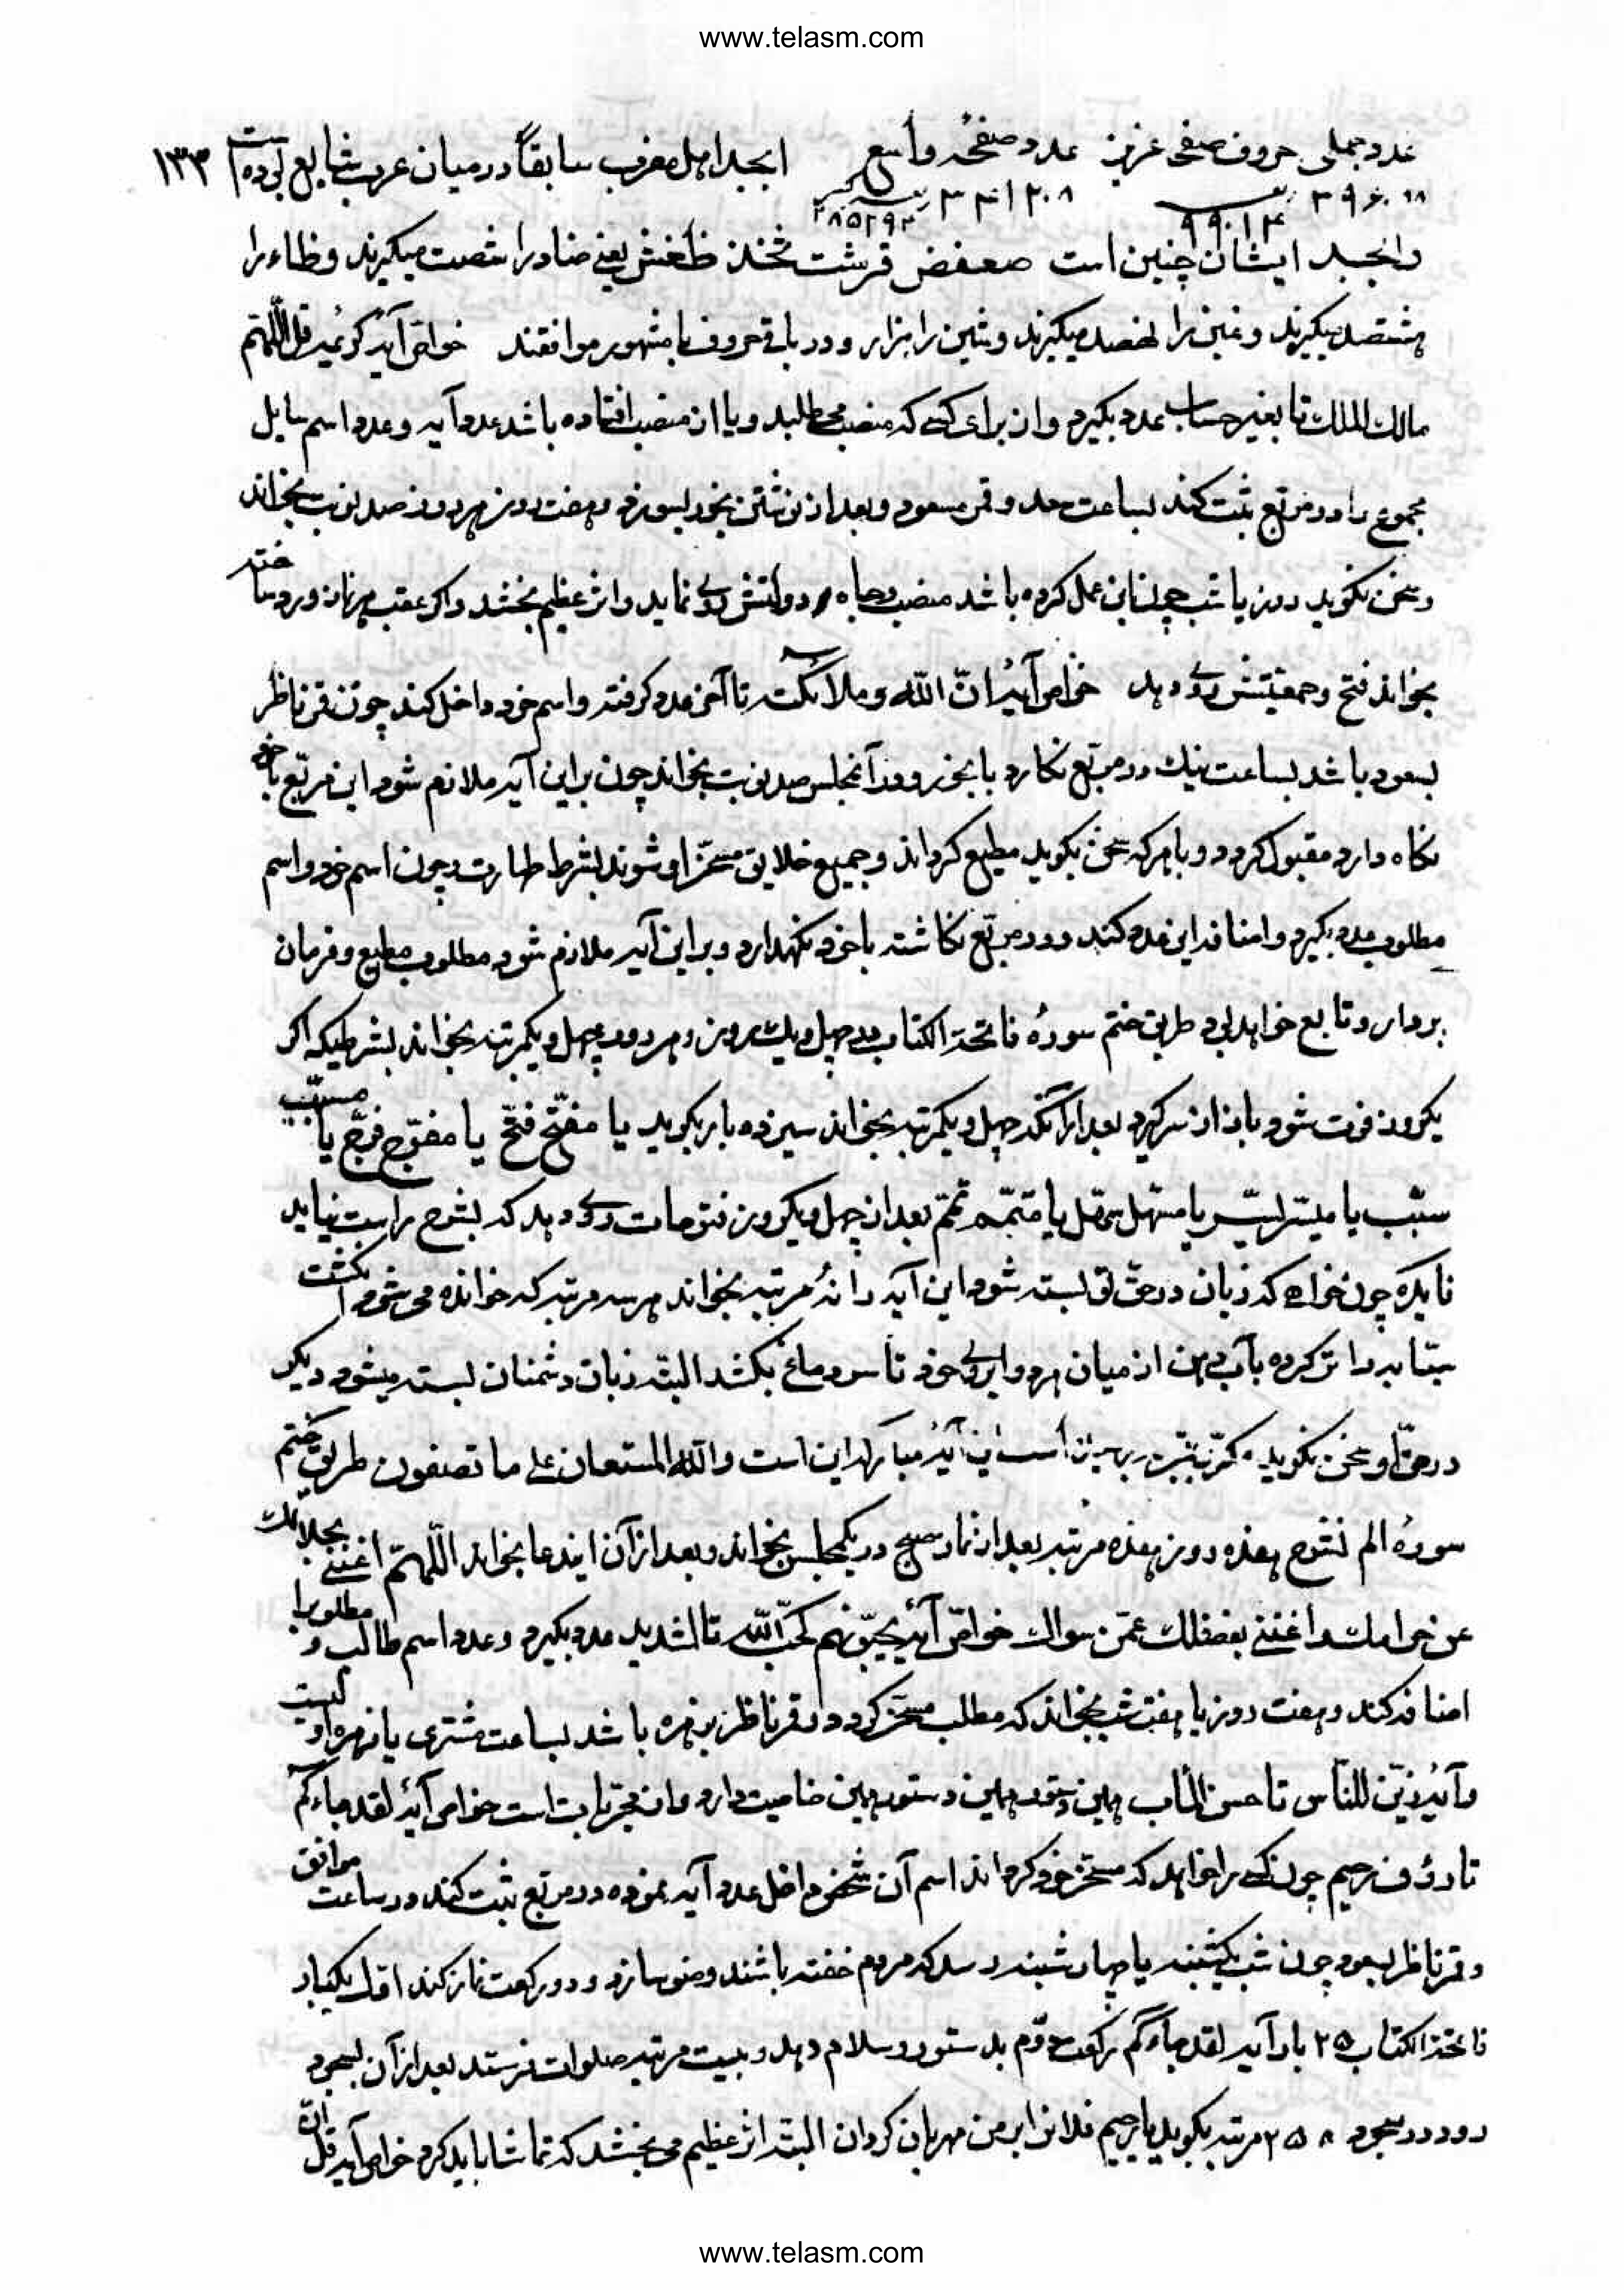 www.telasm.com
عدد جملی حروف صفحی عزیز عدد صفحه واسع ابجد اهل مغرب سابقاً در میان عرب شایع بوده است ۱۳۳
وابجد ایشان چنین است صعفض قرست ثخذ ظغش یعنی ضاد را شصت میگیرند وظاء را
هشتصد میگیرند وغین را نهصد میگیرند وشین را هزار ودر باقی حروف با مشهور موافقند خواص آیه کریمه قل اللّهم
مالك الملك تا بغیر حساب عدد بگیرد وان برای کسی که منصب می طلبد ویا از منصب افتاده باشد عدد آیه وعدد اسم سایل
مجموع را در مربع ثبت کند بساعت سعد وقمر مسعود وبعد از نوشتن بخور بسوزد وهفت روز هر روز صد نوبت بخواند
وسخن نگوید روز یا شب چون این عمل کرده باشد منصب وجاه ودولتش روی نماید واثر عظیم بخشد واگر عقب هر نماز ورد ساخته
بخواند فتح وجمعیتش روی دهد خواص آیه انّ اللّه وملائکته تا آخر عدد گرفته واسم خود داخل کند چون قمر ناظر
بسعود باشد بساعت نیك در مربع نگارد با بخور ودر آنمجلس صد نوبت بخواند چون براین آیه ملازم شود این مربع با خود
نگاه دارد مقبول گردد وبا هر که سخن بگوید مطیع گرداند وجمیع خلایق مسخّر او شوند بشرط طهارت وچون اسم خود واسم
مطلوب عدد بگیرد واضافه این عدد کند ودر مربع نگاشته با خود نگهدارد وبر این آیه ملازم شود مطلوب مطیع وفرمان
بردار وتابع خواهد بود طریق ختم سورۀ فاتحة الکتاب چهل ویك روز وهر روز چهل ویکمرتبه بخواند بشرطیکه اگر
یکروز فوت شود باز از سر گیرد بعد از آنکه چهل ویکمرتبه بخواند سیزده بار بگوید یا مفتّح فتّح یا مفرّج فرّج یا مسبّب
سبّب یا میسّر یسّر یا مسهّل سهّل یا متمّم تمّم بعد از چهل ویکروز فتوحات روی دهد که بشرح راست نیاید
فایده چون خواهی که زبان در حق تو بسته شود این آیه را نه مرتبه بخواند هر سه مرتبه که خوانده می شود انگشت
سبّابه را تر کرده بآب دهن از میان هر دو ابروی خود تا سر دماغ بکشد البته زبان دشمنان بسته میشود دیگر
در حق او سخن نگوید آیۀ مبارکه این است واللّه المستعان علی ما تصفون طریق ختم
سورۀ الم نشرح هفده روز هفده مرتبه بعد از نماز صبح در یکمجلس بخواند وبعد از آن ایندعا بخواند اللّهمّ اغننی بحلالك
عن حرامك واغننی بفضلك عمّن سواك خواص آیۀ یحبّونهم کحبّ اللّه تا لشدید عدد بگیرد وعدد اسم طالب ومطلوبرا
اضافه کند وهفت روز یا هفت شب بخواند که مطلب مسخّر گردد وقمر ناظر بزهره باشد بساعت مشتری یا زهره
وآیۀ زیّن للنّاس تا حسن المآب همین دستور همین خاصیت دارد واز مجرّبات است خواص آیۀ لقد جاءکم
تا رؤف رحیم چون کسی را خواهد که مسخّر خود گرداند اسم آن شخص داخل عدد آیه نموده در مربع ثبت کند در ساعت موافق
وقمر ناظر بسعود چون شب یکشنبه یا چهارشنبه رسد که مردم خفته باشند وضو سازد ودو رکعت نماز کند اول یکبار
فاتحة الکتاب ۲۵ بار آیه لقد جاءکم رکعت دوّم بدستور وسلام دهد وبیست مرتبه صلوات فرستد بعد از آن بسجود
رود در سجود ۲۵۸ مرتبه بگوید یا رحیم فلانرا بر من مهربان گردان البته اثر عظیم می بخشد که تماشا باید کرد خواص آیه قل انّ
www.telasm.com